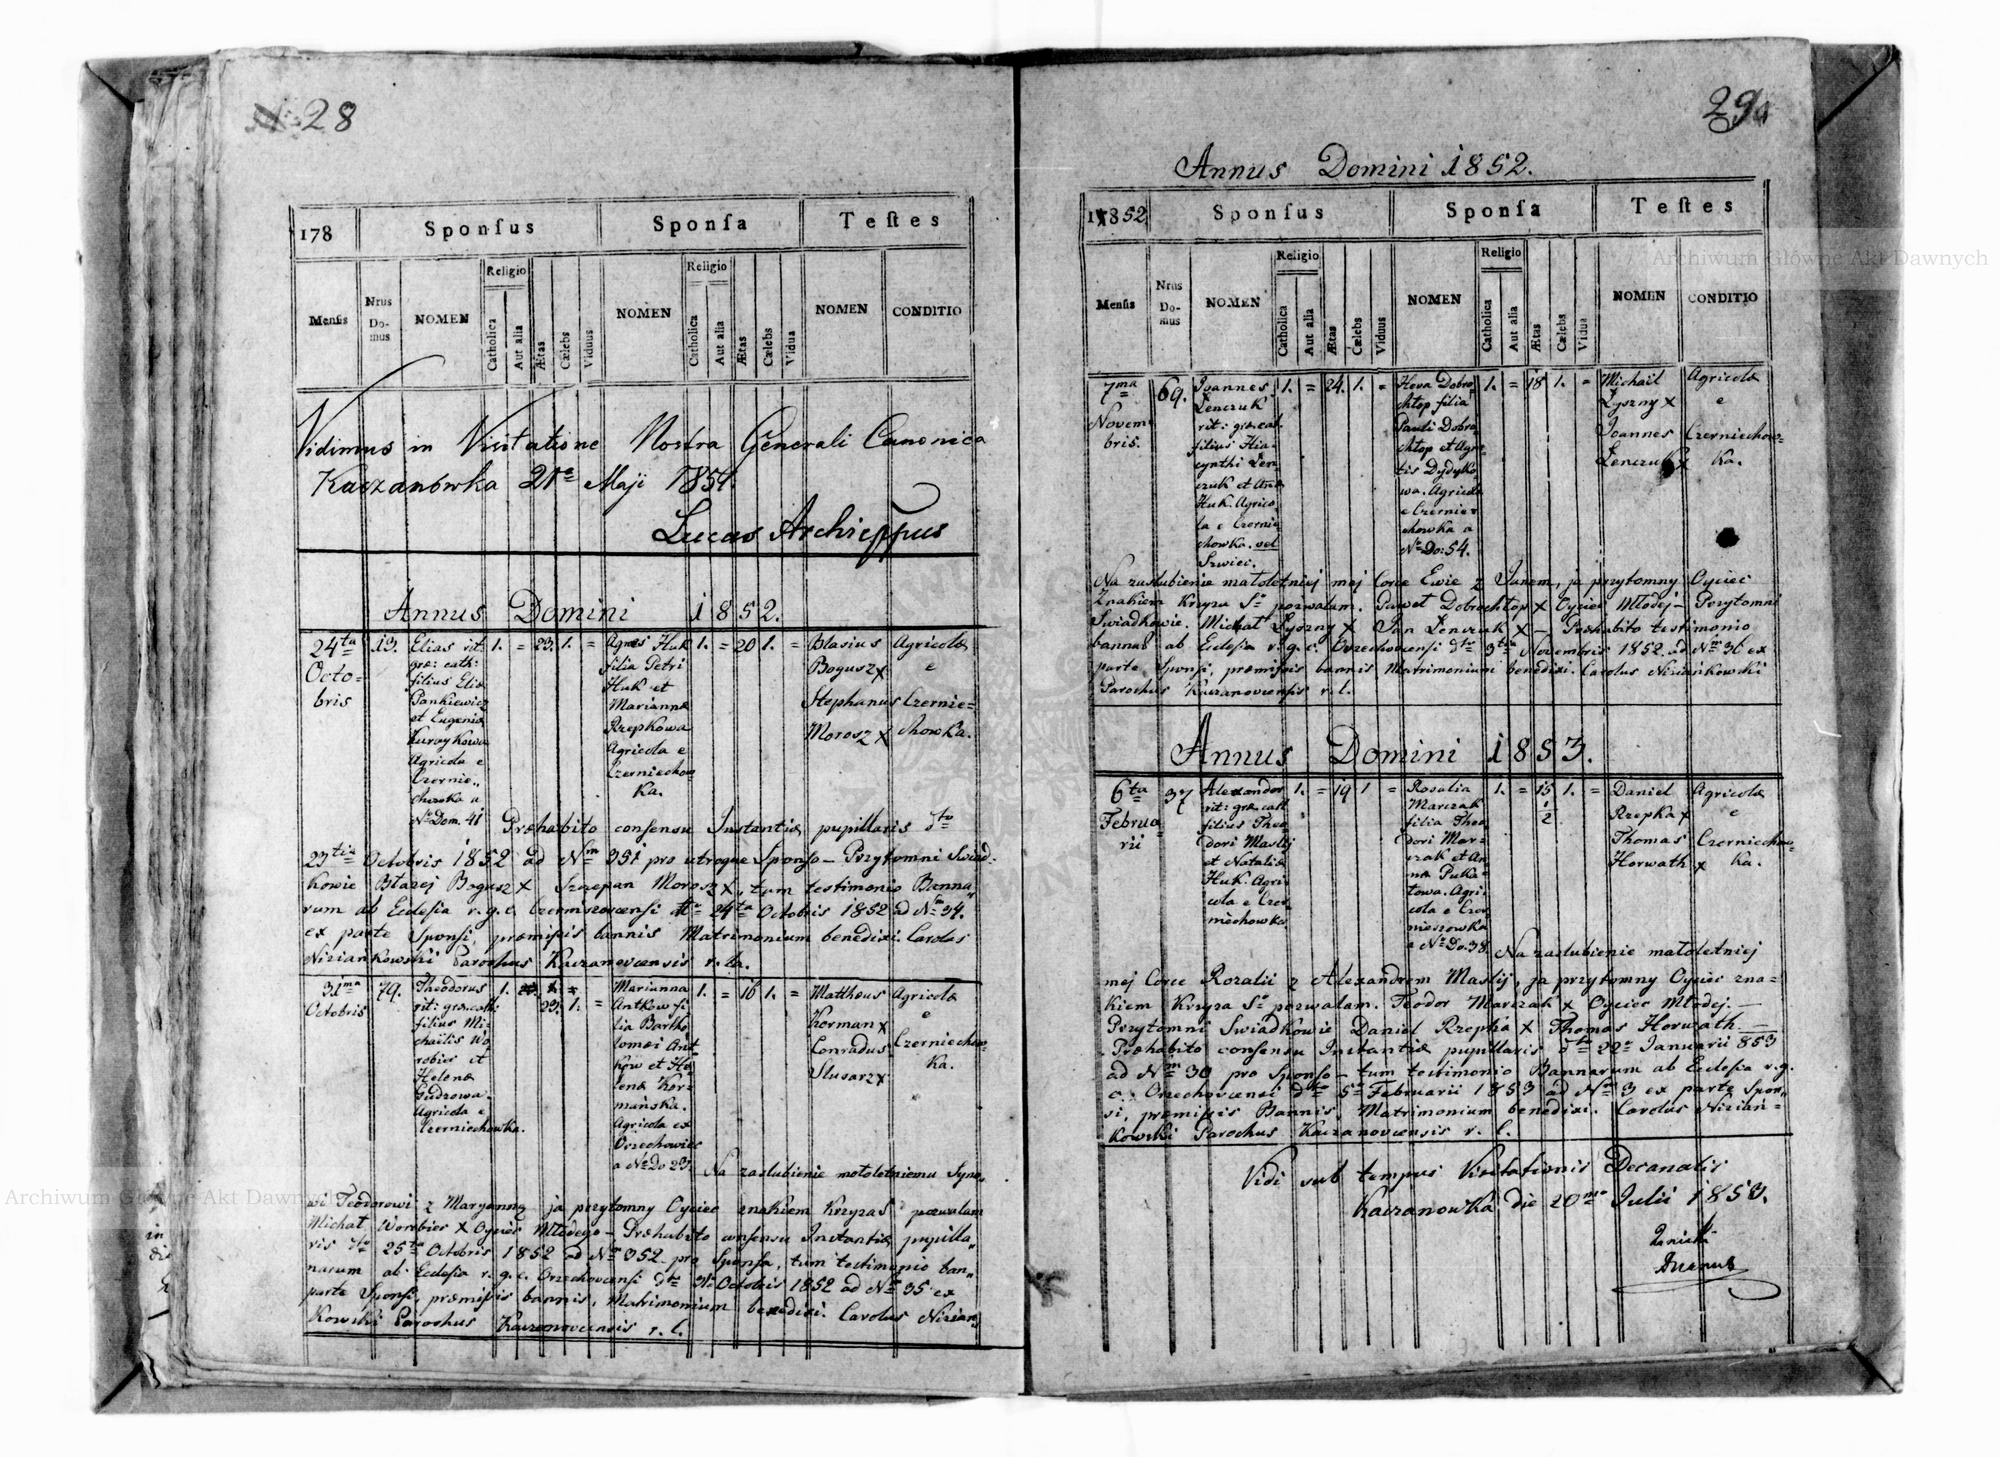 28
178
Sponſus
Sponſa
Teſtes
Menſis
Nrus Do-mus
NOMEN
Religio
Catholica
Aut alia
Ætas
Cælebs
Viduus
NOMEN
Religio
Catholica
Aut alia
Ætas
Cælebs
Vidua
NOMEN
CONDITIO
Vidimus in Visitatione Nostra Generali Canonica
Kaczanówka 21ª Maji 185
Lucas Archieppus
Annus Domini 1852.
24ta
Octo-
bris
13.
Elias rit.
græ: cath:
filius Eliæ
Pankiewicz
et Eugeniæ
Agricola e
Czernie„
chowka a
Nº Dom. 41
1. = 23. 1. =
Agnes Huk
filia Petri
Huk et
Mariannæ
Rzepkowa
Agricola e
Czerniechow
Ka.
1. = 20 1. =
Blasius
Bogusz x
Stephanus
Morosz x
Agricolæ
e
Czernie=
chowka.
Præhabito consensu Instantiæ pupillaris dto
23tia Octobris 1852 ad Nm 351 pro utroque Sponso — Przytomni Swiad-
kowie Błażej Bogusz x Szczepan Morosz x, tum testimonio Banna„
rum ab Ecclesia r. g. c. dto 24ta Octobris 1852 ad Nm 34.
ex parte Sponsi, præmissis bannis Matrimonium benedixi. Carolus
Niziańkowski Parochus Kaczanovcensis r. la.
31ma
Octobris
79.
Theodorus
rit: græ.cath:
filius Mi-
chailis Wo
robiec et
Helenæ
Gudzowa.
Agricola e
Czerniechowka.
1.
23. 1. =
Marianna
Antkow fi
lia Bartho
lomæi Ant
kow et He
lenæ Kor=
mańska.
Agricola ex
Orzechowiec
a Nº Do 23.
1. = 16 1. =
Mattheus
Korman x
Conradus
Slusarz x
Agricolæ
e
Czerniechow-
Ka.
Na zaslubienie małoletniemu Syno„
wi Teodorowi z Maryanną ja przytomny Oyciec znakiem Krzyża Sº pozwalam
Michał Worobiec x Oyciec Młodego — Præhabito consensu Instantiæ pupilla„
ris dto 25ta Octobris 1852 ad Nm 352 pro Sponsa, tum testimonio ban„
narum ab Ecclesia r. g. c. Orzechovcensi dto 31a Octobris 1852 ad Nm 35 ex
parte Sponsi, præmissis bannis, Matrimonium benedixi. Carolus Nizian„
Kowski Parochus Kaczanovcensis r. l.
29
Annus Domini 1852.
1852
Sponſus
Sponſa
Teſtes
Menſis
Nrus Do-mus
NOMEN
Religio
Catholica
Aut alia
Ætas
Cælebs
Viduus
NOMEN
Religio
Catholica
Aut alia
Ætas
Cælebs
Vidua
NOMEN
CONDITIO
7ma
Novem
bris.
69.
Joannes
Zenczuk
rit: græ cat.
filius Hia-
cynthi Zen
czuk et Annæ
Huk. Agrico
la e Czernie
chowka. vel
Szwiec.
1. = 24. 1. =
Heva Dobro
chłop filia
Pauli Dobro
chłop et Agne
tis Dydyko
wa. Agricola
e Czernie=
chowka a
Nº Do: 54.
1. = 18 1. =
Michael
Łyszny x
Joannes
Zenczuk x
Agricolæ
e
Czerniechow=
Ka.
Na zaslubienie małoletniej mej Corce Ewie z Janem, ja przytomny Oyciec
Znakiem Krzyża Sº pozwalam. Paweł Dobrochłop x Oyciec Młodej — Przytomni
Swiadkowie. Michał Łyszny x Jan Zenczuk x — Præhabito testimonio
bannal ab Ecclesia r. g. c. Orzechovcensi dto 3tia Novembris 1852. ad Nm 36 ex
parte Sponsi, præmissis bannis Matrimonium benedixi. Carolus Niziańkowski
Parochus Kaczanovcensis r. l.
Annus Domini 1853.
6ta
Februa-
rii
37
Alexander
rit: græ.cath
filius Theo
dori Maslij
et Nataliæ
Huk. Agri-
cola e Czer
niechowka
1. = 19 1 =
Rosalia
Marczak
filia Theo
dori Mar=
czak et An
næ Puka-
towa. Agri-
cola e Czer
niechowka
a Nº Do. 38.
1. = 15 1/2 1. =
Daniel
Rzepka x
Thomas
Horwath x
Agricolæ
e
Czerniechow=
Ka.
Na zaslubienie małoletniej
mej Corce Rozalii z Alexandrem Maslij, ja przytomny Oyciec zna-
kiem Krzyża Sº pozwalam. Teodor Marczak x Oyciec Młodej. —
Przytomni Swiadkowie Daniel Rzepka x Thomas Horwath —
Præhabito consensu Instantiæ pupillaris dto 22a Januarii 853
ad Nm 30 pro Sponso — tum testimonio Bannarum ab Ecclesia r. g.
c. Orzechovcensi dto 5a Februarii 1853 ad Nm 3 ex parte Spon„
si, præmissis Bannis, Matrimonium benedixi. Carolus Nizian-
kowski Parochus Kaczanovcensis r. l.
Vidi sub tempus Visitationis Decanalis
Kaczanowka die 20ma Julii 1853.
Decanus
Archiwum Główne Akt Dawnych
Archiwum Główne Akt Dawnych